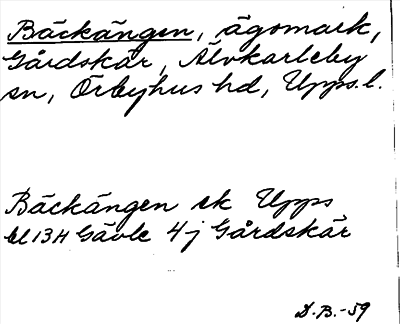 Bäckängen, ägomark,
Gårdskär, Älvkarleby
sn, Örbyhus hd, Upps. l.
Bäckängen ek Upps
bl 13H Gävle 4j Gårdskär
D.B.-59